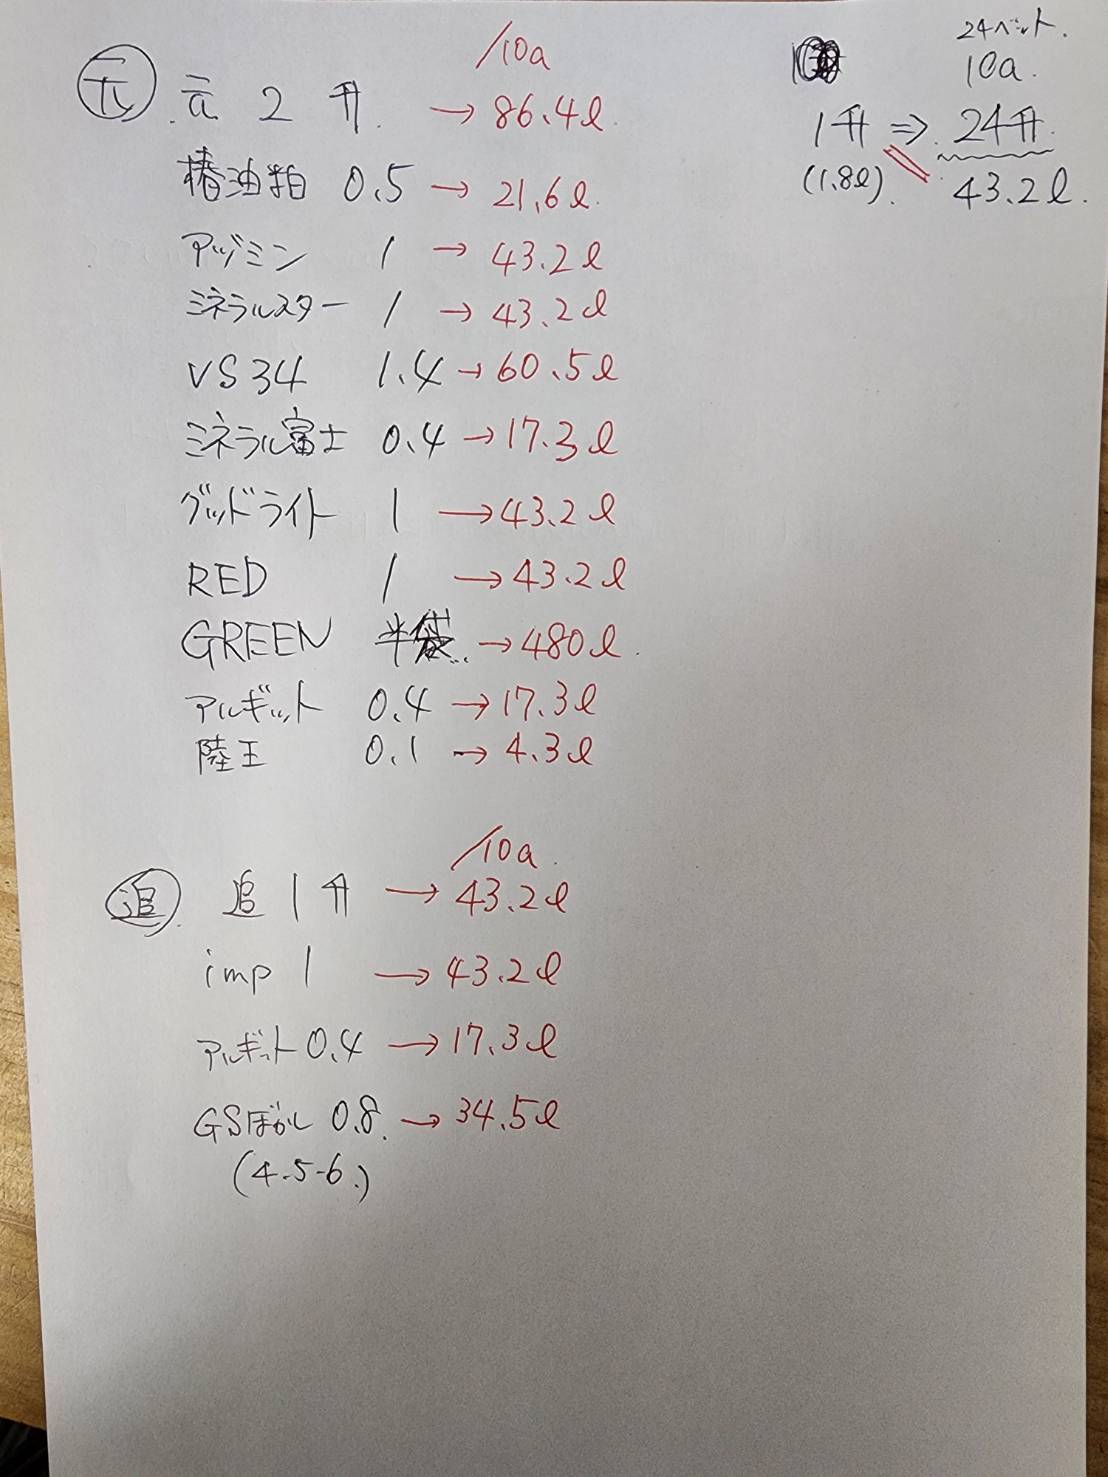 24ベット.
10a.
1升 ⇒ 24升.
(1.8ℓ). 43.2ℓ.
/10a
元 元 2升. → 86.4ℓ.
椿油粕 0.5 → 21.6ℓ.
アヅミン 1 → 43.2ℓ
ミネラルスター 1 → 43.2ℓ
VS34 1.4 → 60.5ℓ
ミネラル富士 0.4 → 17.3ℓ
グッドライト 1 → 43.2ℓ
RED 1 → 43.2ℓ
GREEN 半袋.. → 480ℓ.
アルギット 0.4 → 17.3ℓ
陸王 0.1 → 4.3ℓ
/10a.
追. 追 1升 → 43.2ℓ
imp 1 → 43.2ℓ
アルギット 0.4 → 17.3ℓ
GSぼかし 0.8. → 34.5ℓ
(4.5-6.)